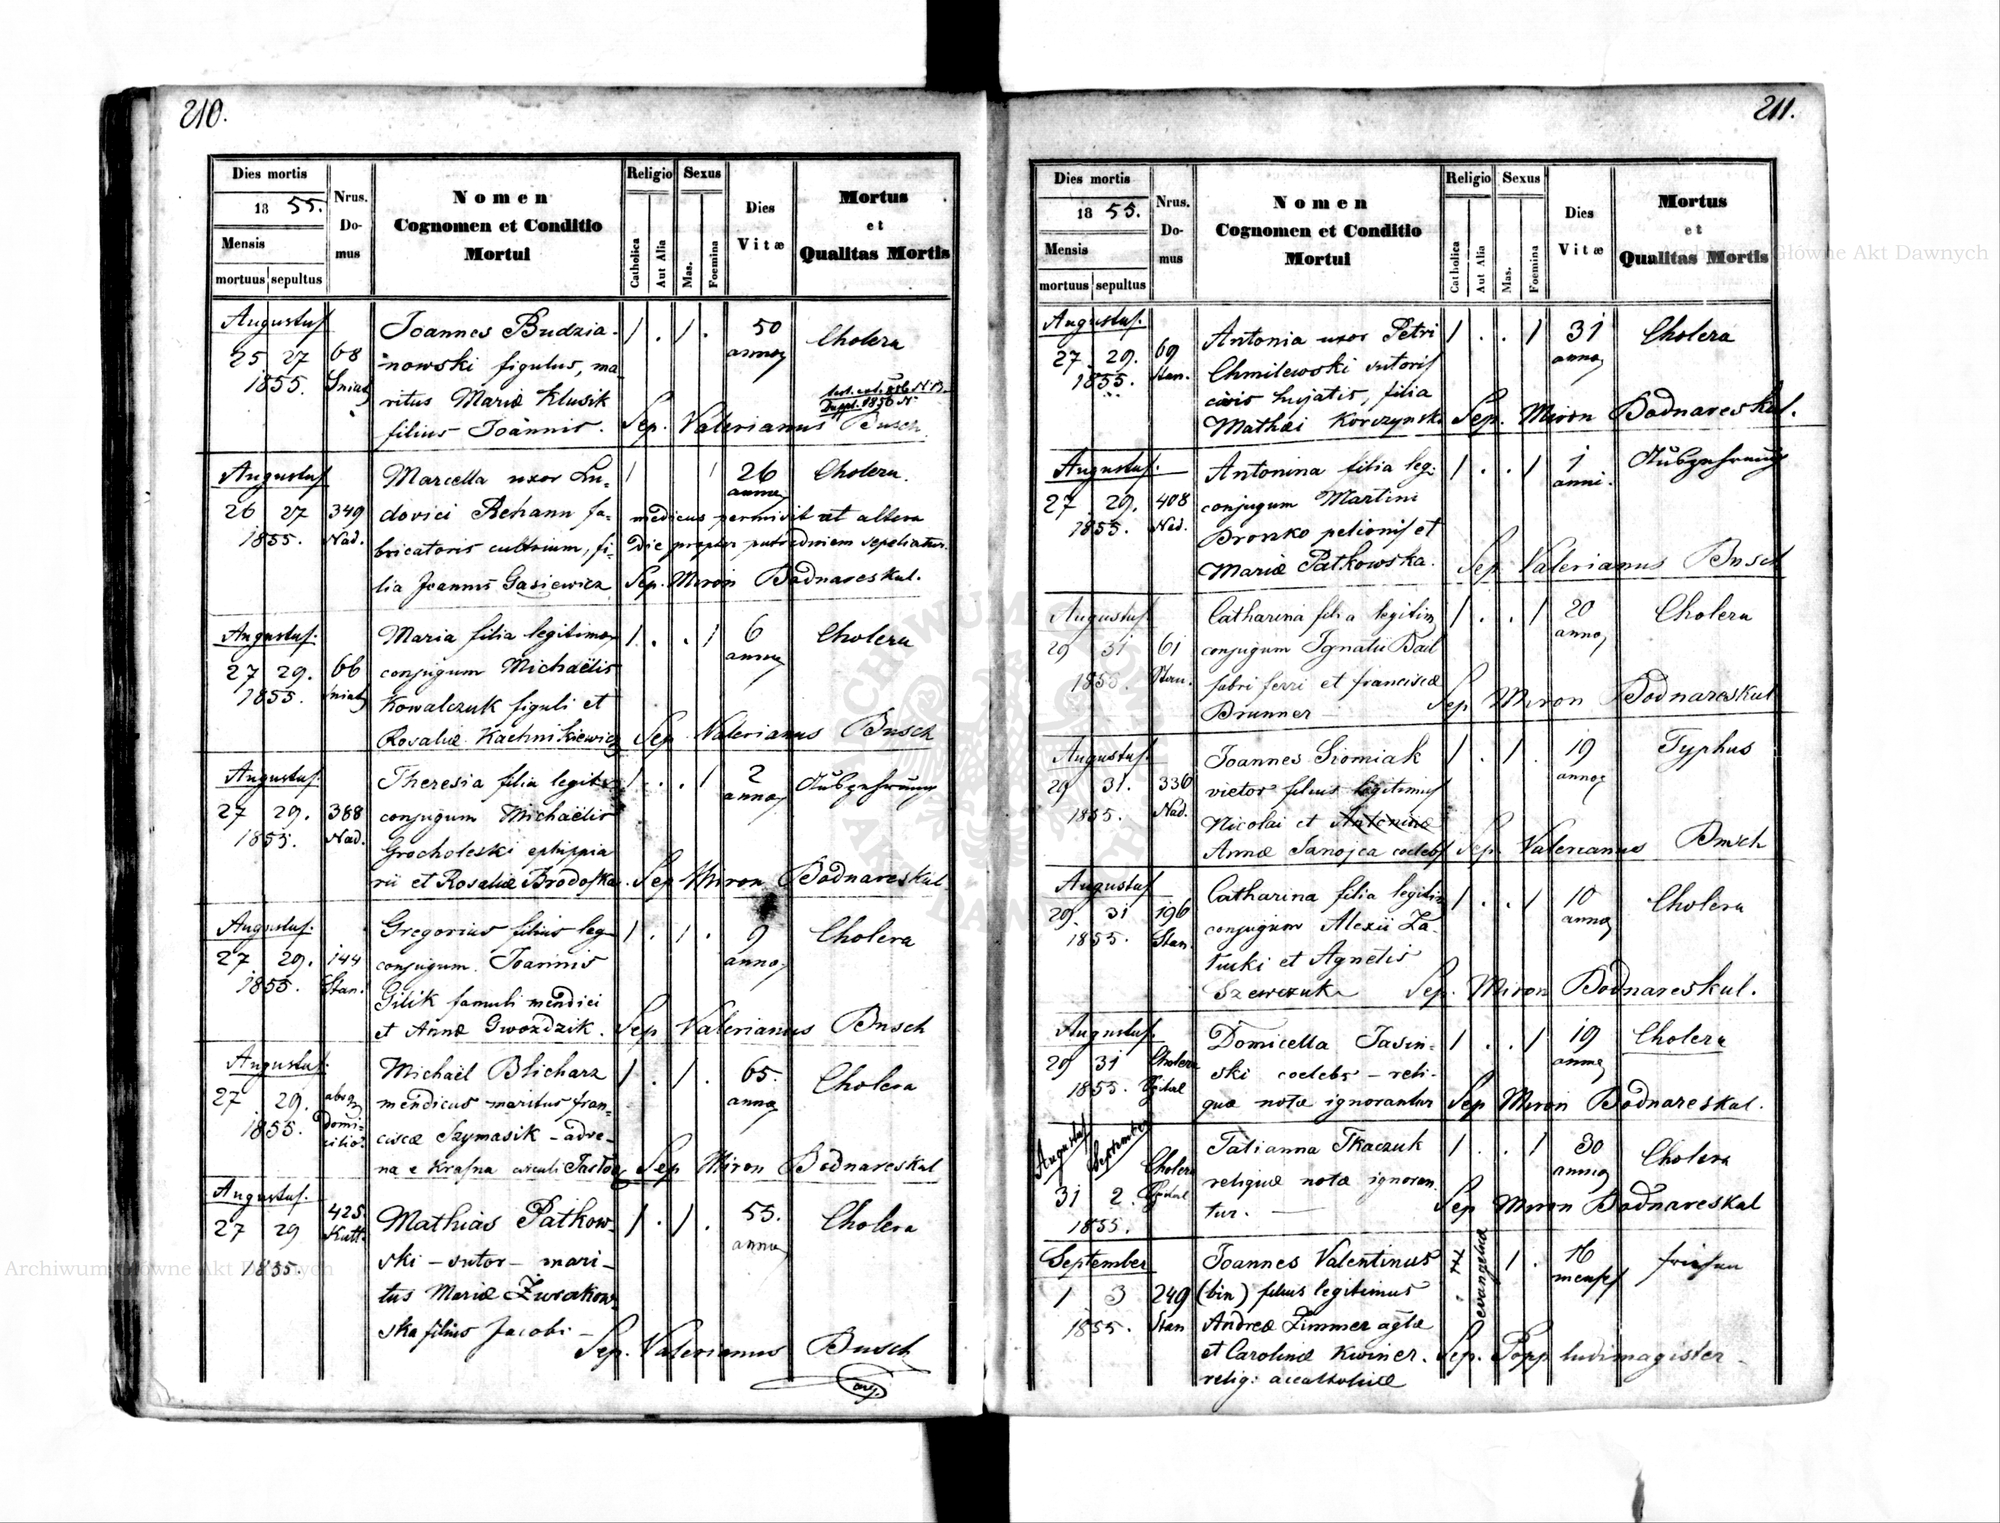 210.
Dies mortis
Nrus. Domus
Nomen
Cognomen et Conditio
Mortui
Religio
Sexus
Dies
Vitæ
Mortus
et
Qualitas Mortis
1855.
Mensis
mortuus sepultus
Catholica
Aut Alia
Mas.
Foemina
Augustus
25 27 68
1855.
Joannes Budzia-
nowski figulus, ma-
ritus Mariæ Klusik
filius Joannis.
1 . 1 . 50
Cholera
Sep. Valerianus Busch
Augustus
26 27 349
1855. Nad.
Marcella uxor Lu-
dovici Rehann fa-
bricatoris cultrium, fi-
lia Joannis Gasiewicz
1 1 26
Cholera.
medicus permisit ut altera
die propter putredniem sepeliatur.
Sep. Miron Bodnareskul.
Augustus.
27 29. 66
1855.
Maria filia legitima
conjugum Michaëlis
Kowalczuk figuli et
Rosaliæ Kachnikiewicz
1 . . 1 6
Cholera
Sep Valerianus Busch
Augustus.
27 29. 388
1855. Nad.
Theresia filia legit
conjugum Michaëlis
Grocholeski ephippia
rii et Rosaliæ Brodoska
1 . . 1 2
Sep Miron Bodnareskul
Augustus.
27 29. 144
1855. Stan.
Gregorius filius leg
conjugum Joannis
Gilik famuli mendici
et Annæ Gwozdzik.
1 . 1 . 9
Cholera
Sep Valerianus Busch
Augustus.
27 29. absq
1855. domi-
cilio
Michaël Blicharz
mendicus maritus fran-
ciscæ Szymasik - adve-
na e Krasna circuli
1 . 1 . 65.
Cholera
Sep Miron Bodnareskul
Augustus.
27 29 425.
1855. Kutt.
Mathias Patkow-
ski - sutor - mari-
tus Mariæ
ska filius Jacobi -
1 . 1 . 55.
Cholera
Sep. Valerianus Busch
211.
Dies mortis
Nrus. Domus
Nomen
Cognomen et Conditio
Mortui
Religio
Sexus
Dies
Vitæ
Mortus
et
Qualitas Mortis
1855.
Mensis
mortuus sepultus
Catholica
Aut Alia
Mas.
Foemina
Augustus.
27 29. 69
1855. Stan.
Antonia uxor Petri
Chmilewski sutoris
civis hujatis, filia
Mathæi Korczynski
1 . . 1 31
Cholera
Sep. Miron Bodnareskul.
Augustus.
27 29. 408
1855. Nad.
Antonina filia leg:
conjugum Martini
Dronzko pelionis et
Mariæ Patkowska.
1 . . 1 1
anni.
Sep Valerianus Busch
Augustus.
29 31 61
1855. Stan.
Catharina filia legitim
conjugum Ignatii Bail
fabri ferri et franciscæ
Brunner
1 . . 1 20
Cholera
Sep Miron Bodnareskul
Augustus.
29 31. 336
1855. Nad.
Joannes Siomiak
vietor filius legitimus
Nicolai et Antoninæ
Annæ Sanojca coelebs
1 . 1 . 19
Typhus
Sep. Valerianus Busch
Augustus
29. 31 196
1855. Stan.
Catharina filia legitim
conjugum Alexii Za-
tucki et Agnetis
Szewczuk
1 . . 1 10
Cholera
Sep. Miron Bodnareskul.
Augustus.
29 31 Cholera
1855. Spital
Domicella Jasin-
ski coelebs - reli-
quæ notæ ignorantur
1 . . 1 19
Cholera
Sep Miron Bodnareskul.
Augustus September
31 2. Cholera Spital
1855.
Tatianna Tkaczuk
reliquæ notæ ignoran
tur.
1 . . 1 30
Cholera
Sep Miron Bodnareskul
September
1 3 249
1855. Stan
Joannes Valentinus
(bin) filius legitimus
Andreæ Zimmer
et Carolinæ Kwiner.
relig: accatholicæ
evangelica
1 . 16
Sep. Popp ludimagister
Archiwum Główne Akt Dawnych
Archiwum Główne Akt Dawnych
ARCHIWUM GŁÓWNE AKT DAWNYCH